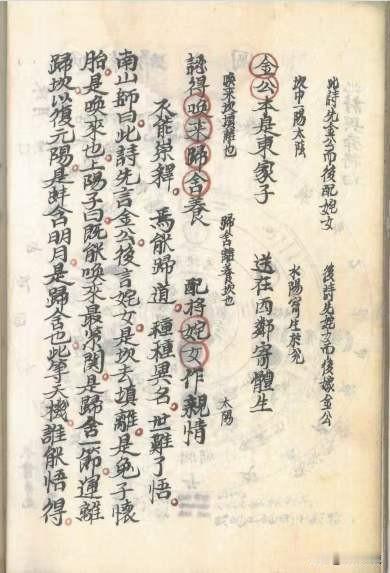 此詩先金公而後配姹女　後詩先姹女而後嫁金公
坎中一陽太陰　水陽寄生於兌
金公本是東家子　送在西鄰寄體生
喚来坎填離也　歸舍離養坎也　太陽
認得喚来歸舍養　配將姹女作親情
不能崇釋。焉能歸道。種種異名。世難了悟。
南山師曰此詩先言金公後言姹女是坎去填離是兔子懷
胎。是喚來也。上陽子曰既能喚来最緊関是歸舍一節。運離
歸坎以復元陽。是蚌含明月。是歸舍也。此等天機。誰能悟得。